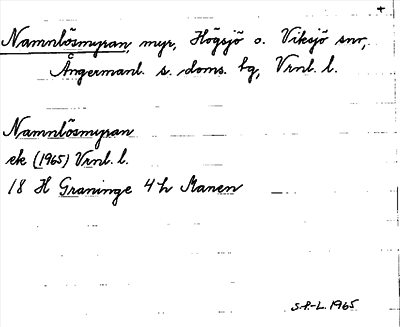 +
Namnlösmyran, myr, Högsjö o. Viksjö snr,
Ångermanl. s. doms. tg, Vrnl. l.
Namnlösmyran
ek (1965) Vrnl. l.
18 H Graninge 4 h Stanen
S.P-L. 1965